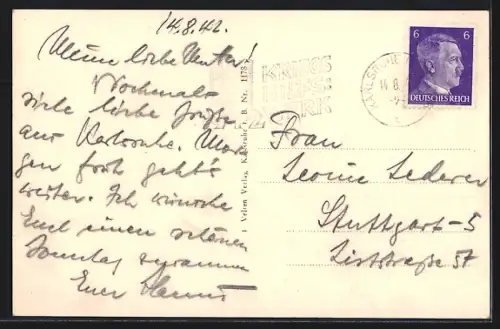 14.8.42.
Meine liebe Mutter!
Nochmals
viele liebe Grüße
aus Karlsruhe. Mor-
gen früh geht's
weiter. Ich wünsche
Euch einen schönen
Sonntag zusammen
Euer
Karlsruhe i. B. Nr. 1178
KRIEGS
HILFS
WERK
KARLSRUHE
14.8.
6 6
DEUTSCHES REICH
Frau
Leonie Lederer
Stuttgart-S
Liststraße 57